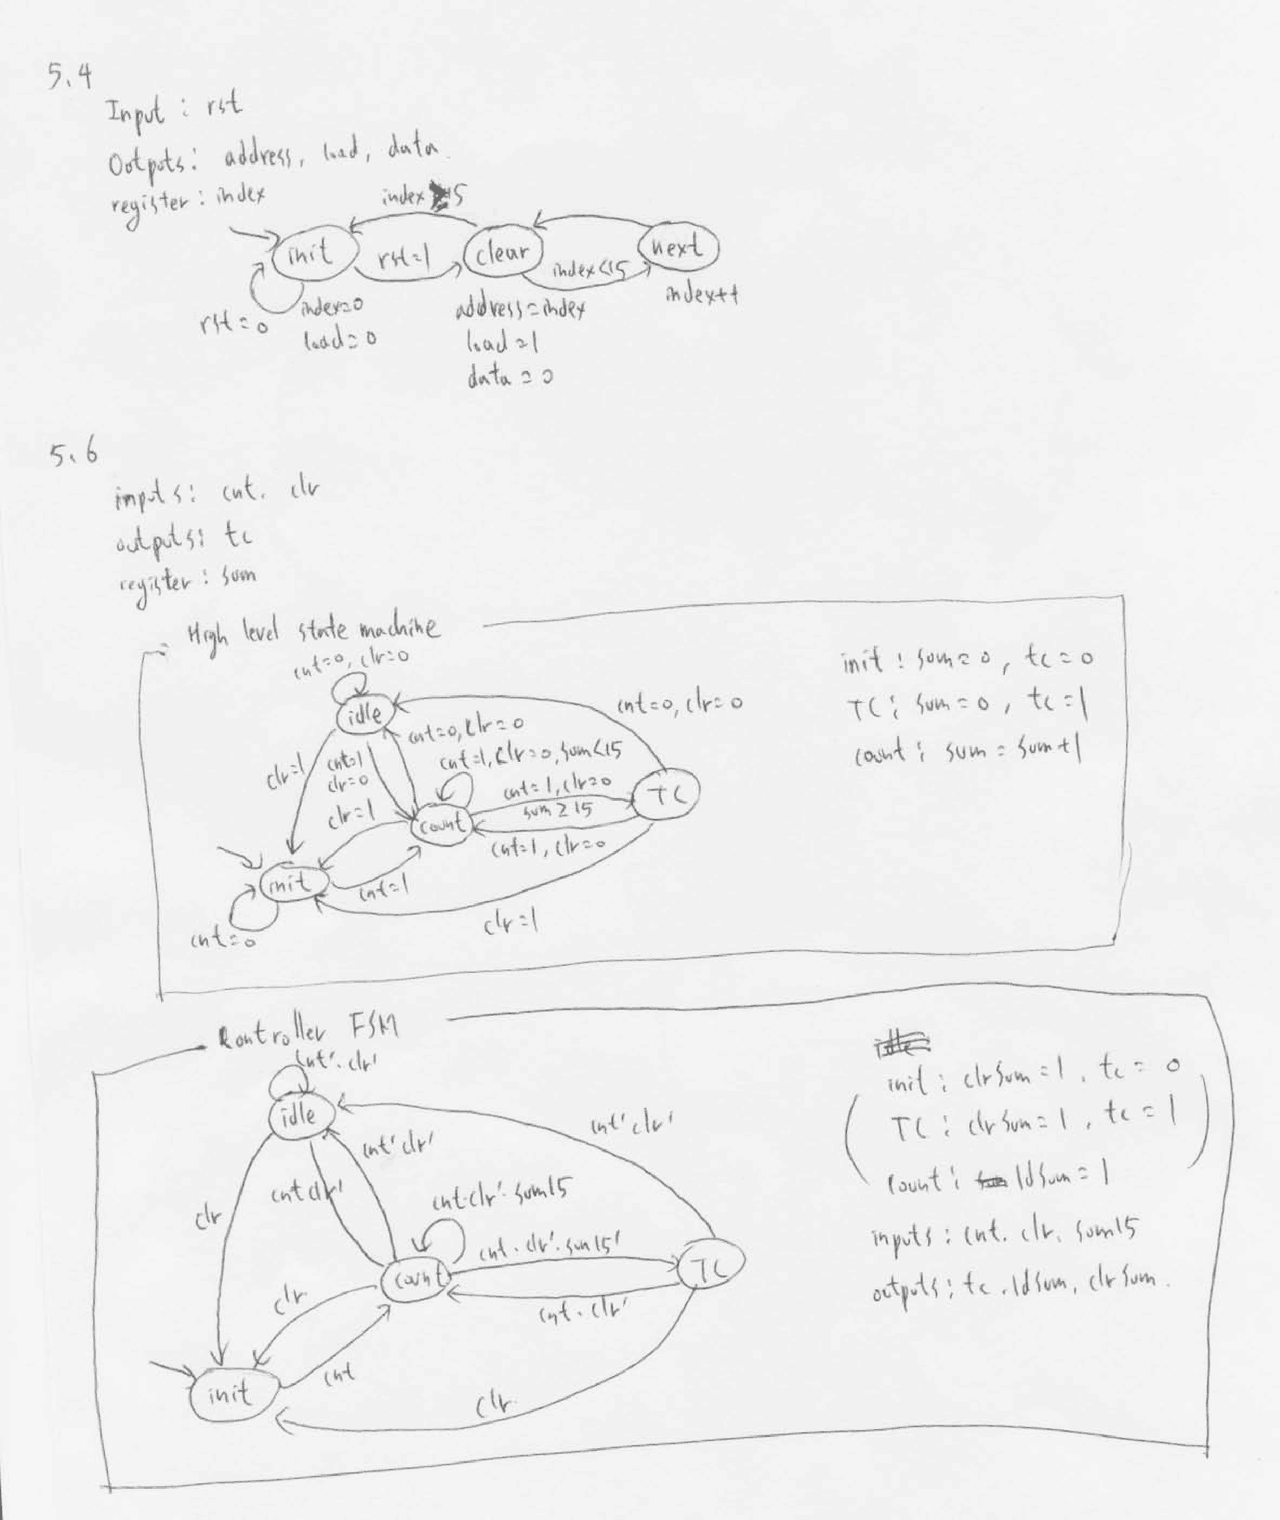 5.4
Input : rst
Ootpots: address, load, data.
register : index
index ≥15
init
rst=1
clear
index<15
next
rst=0
index=0
load=0
address=index
load=1
data=0
index++
5.6
inputs: cnt. clr
outputs: tc
register : sum
High level state machine
cnt=0, clr=0
idle
cnt=0, clr=0
cnt=0, clr=0
clr=1
cnt=1
clr=0
cnt=1, clr=0, sum<15
cnt=1, clr=0
sum≥15
TC
clr=1
count
cnt=1, clr=0
init
cnt=1
cnt=0
clr=1
init : sum=0, tc=0
TC : sum=0, tc=1
count : sum = sum+1
Controller FSM
cnt'·clr'
idle
cnt'clr'
cnt'clr'
clr
cntclr'
cnt·clr'·sum15
cnt·clr'·sum15'
count
TC
clr
cnt·clr'
init
cnt
clr
init : clrsum=1, tc=0
TC : clrsum=1, tc=1
count : ldsum=1
inputs : cnt. clr. sum15
outputs : tc. ldsum, clrsum.